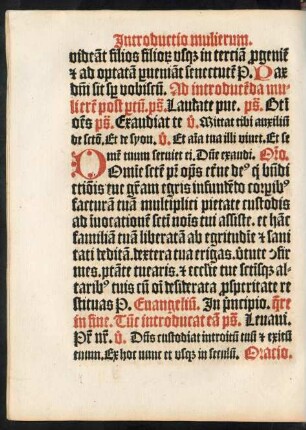 Introductio mulierum.
videāt filios filioꝝ vsqꝫ in terciā ꝓgeniē
⁊ ad optatā ꝑueniāt senectutē P. Pax
dn̄i sit sꝑ vobiscū. Ad introducēda mu-
lierē post ptū. ps. Laudate pue. ps. Oēs
gētes ps. Exaudiat te v̄. Mittat tibi auxiliū
de sctō. Et de syon. v̄. Et aīa mea illi viuet. Et se
mē meum seruiet ei. Dn̄e exaudi. Orō.
Domine sctē pr̄ op̄s eterne deꝰ q̄ bn̄di
ctiōnis tue gr̄am egris infundēdo corpibꝰ
facturā tuā multiplici pietate custodis
ad īuocationē sctī nois tui assiste. et hāc
familiā tuā liberatā ab egritudīe ⁊ sani
tati dedita. dextera tua erigas. vtute ↄfir
mes. ptāte tuearis. et ecclie tue sctisqꝫ al-
taribꝰ tuis cū oī desiderata ꝓsperitate re
stituas P. Euangeliū. In pncipio. qre
in fine. Tūc introducat eā ps. Leuaui.
Pr̄ nr̄. v̄. Dn̄s custodiat introitū tuū ⁊ exitū
tuum. Ex hoc nunc et vsqꝫ in seculū. Oratio.